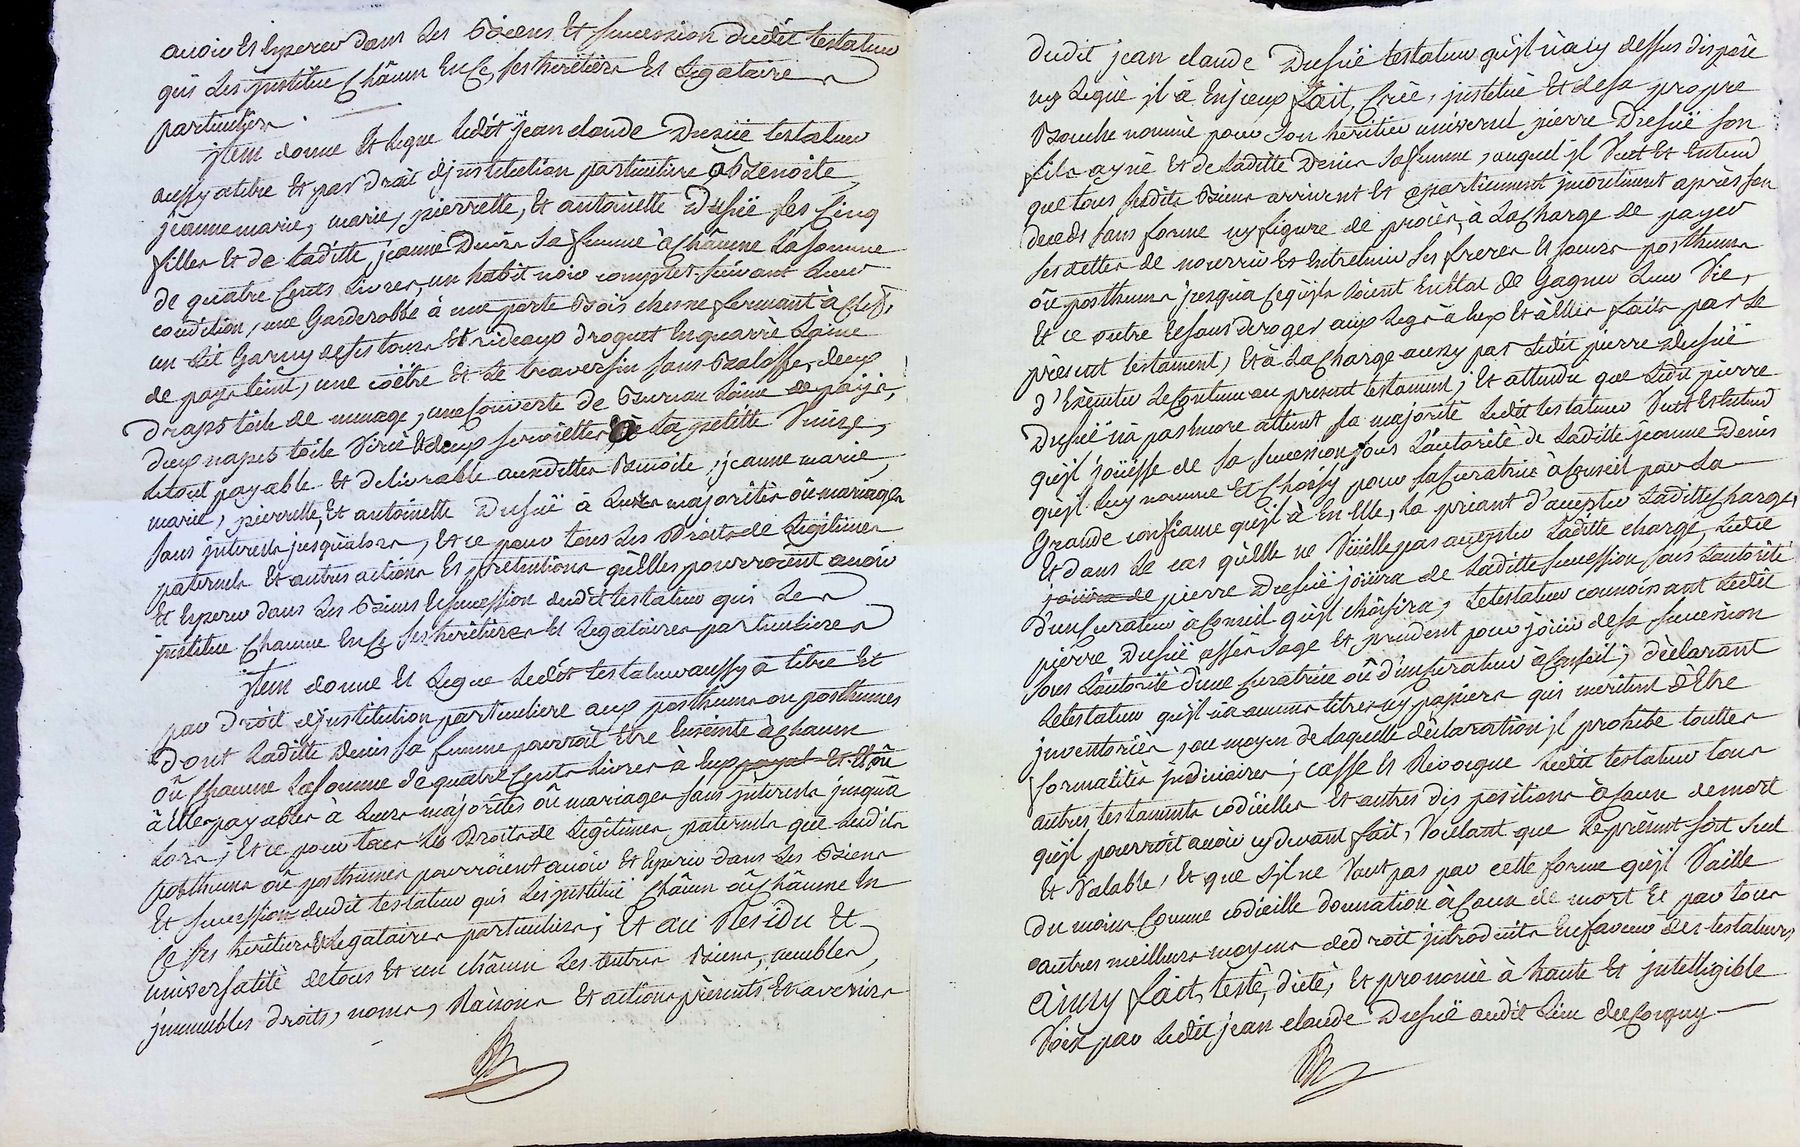 avoir Et Esperer dans Les Biens Et succession dudit testateur
qui Les jnstitüe Châcun En Ce ses heritiers Et Legataires
particuliers.
jtem donne Et Legue Ledit jean claude Dusuë testateur
aussy atitre Et par droit djnstitution particuliere à Benoite,
jeanne marie, marie, pierrette, Et antoinette Dusuë ses Cinq
filles Et de Laditte jeanne Denis Sa femme à Châcune La Somme
de quatre Cents Livres, un habit noir complet suivant Leur
condition, une Garderobbe à une porte Bois chesne fermant à Clef,
un Lit Garny de ses tours Et rideaux droguet En quarré Laine
de pays teint, une coëtre Et Le traversin sans Baloffe, deux
Draps toile de menage, une Couverte de Bureau Laine de pays,
deux napes toile Virée Et deux serviettes à La petitte Venize,
Letout payable Et delivrable auxdittes Benoite, jeanne marie,
marie, pierrette, Et antoinette Dusuë à Leurs majorités oû mariages
sans jnterests jusqualors, Et ce pour tous Les Droits de Legitimes
paternels Et autres actions Et pretentions qu'Elles pourroient avoir
Et Esperer dans Les Biens Et succession dudit testateur qui Les
jnstitüe Chacune En Ce ses heritieres Et Legataires particulieres
jtem donne Et Legue Ledit testateur aussy a titre Et
par Droit djnstitution particuliere aux posthume ou posthumes
Dont Laditte Denis sa femme pourroit Etre Enceinte à Châcun
oû Châcune La Somme de quatre Cents Livres à Eux payab Et Et oû
à Elles payables à Leurs majorités oû mariages sans jnterests jusquà
Lors; Et ce pour tous Les Droits de Legitimes paternels que Lesdits
posthume oû posthumes pourroient avoir Et Esperer dans Les Biens
Et succession dudit testateur qui Les jnstitüe Châcun oû Châcune En
Ce ses heritiers Et Legataires particuliers; Et au Residu Et
universalité de tous Et un châcun Les autres Biens, meubles,
jmmeubles droits, noms, Raisons Et actions présents Et avenirs
dudit jean claude Dusuë testateur qu'jl n'a cy dessus disposé
ny Legüé jl à Enjceux fait, Créé, jnstitüé Et de sa propre
Bouche nommé pour Son heritier universel pierre Dusuë Son
fils ayné Et de Laditte Denis Sa femme, auquel jl Veut Et Entend
que tous Sesdits Biens arrivent Et apartiennent jncontinent après Son
decéds sans forme ny figure de procès, à La Charge de payer
Ses dettes de nourrir Et Entretenir Ses freres Et Soeurs posthume
oû posthumes jusquà ce qu'jls soient En Etat de Gagner Leur Vie,
Et ce outre Et sans deroger aux Legs à Eux Et à Elles faits par Le
présent testament, Et à La Charge aussy par Ledit pierre Dusuë
d'Exécuter Le Contenu au present testament; Et attendu que Ledit pierre
Dusuë n'à pas Encore atteint Sa majorité Ledit testateur Veut Et Entend
qu'jl joüisse de Sa Succession sous L'autorité de Laditte jeanne Denis
qu'jl Luy nomme Et Choisy pour Sa Curatrice à Conseil par La
Grande confiance qu'jl à En Elle, La priant d'accepter Laditte Charge,
Et dans Le cas qu'Elle ne Veüille pas accepter Laditte charge, Ledit
joüira de pierre Dusuë joüira de Laditte succession sous L'autorité
d'un Curateur à Conseil qu'jl Choisira, Le testateur connoissant Ledit
pierre Dusuë assés Sage Et prudent pour joüir de Sa Succession
sous L'autorité d'une Curatrice oû d'un Curateur à Conseil; déclarant
Letestateur qu'jl n'a aucuns titres ny papiers qui meritent d'Etre
jnventoriés, au moyen de laquelle déclaration jl prohibe touttes
formalités judiciaires; casse Et Révocque Ledit testateur tous
autres testaments codicilles Et autres dispositions à Cause de mort
qu'jl pourroit avoir cy devant fait, Voulant que Le présent soit seul
Et Valable, Et que s'jl ne Vaut pas par cette forme qu'jl Vaille
du moins Comme codicille donnation à Cause de mort Et par tous
autres meilleurs moyens de droit jntroduits En faveur des testateurs
ainsy fait, testé, dicté, Et prononcé à haute Et jntelligible
Voix par Ledit jean claude Dusuë audit Lieu de